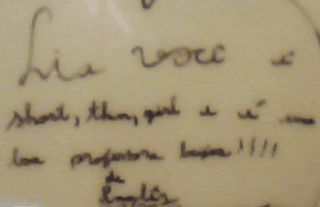 Lia você é
short, thin, girl e é uma
boa professora beijos!!!!
de
Inglês